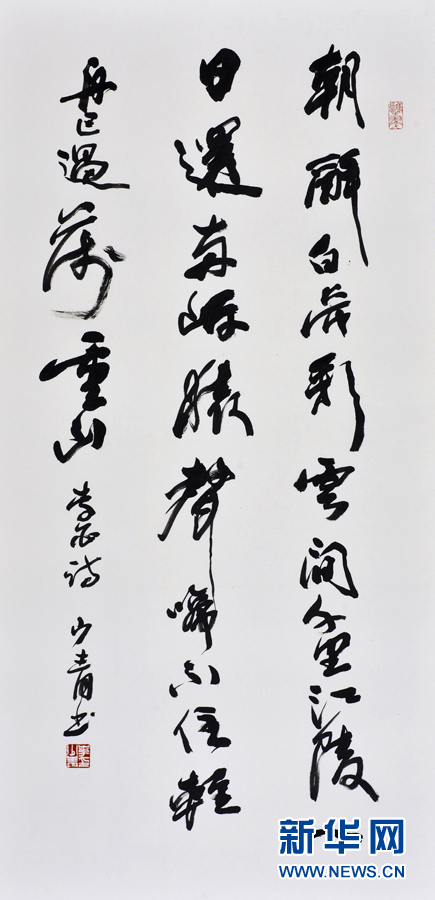 朝辭白帝彩雲間千里江陵一
日還两岸猿聲啼不住輕
舟已過萬重山 李白詩 少青书
新华网
WWW.NEWS.CN